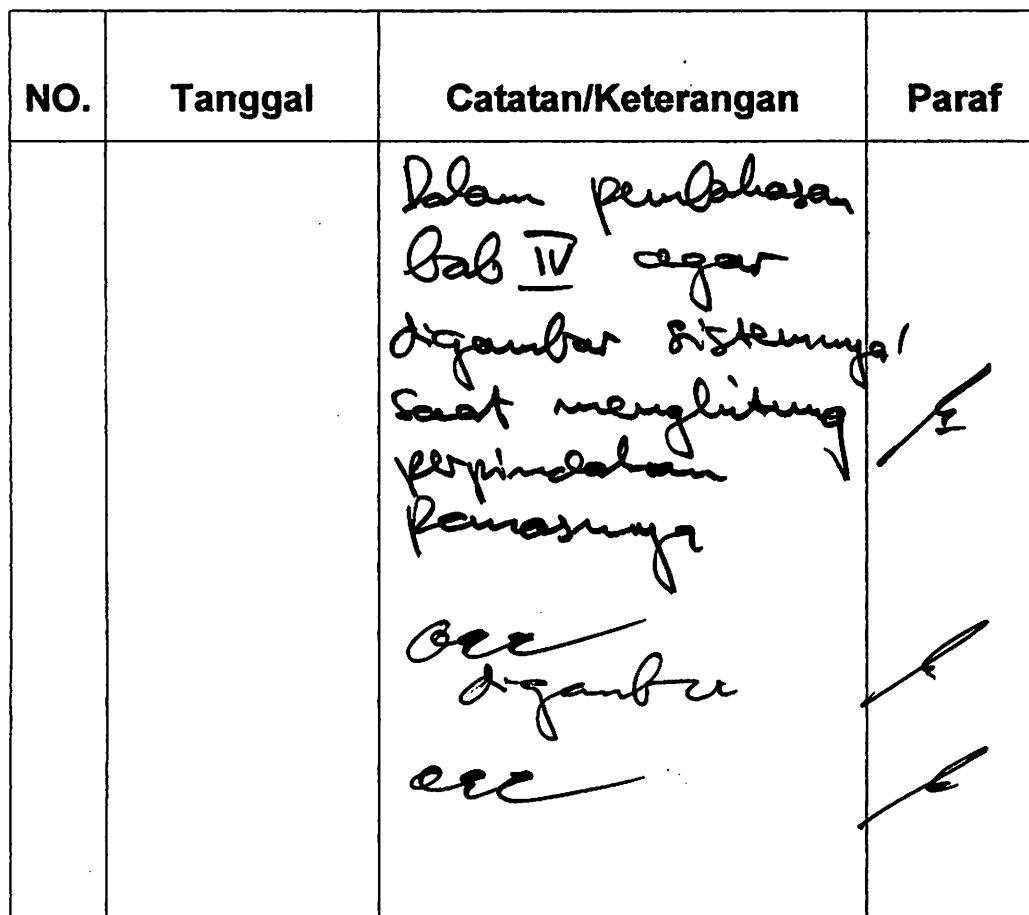 NO. Tanggal Catatan/Keterangan Paraf
Dalam pembahasan
bab IV agar
digambar sistemnya!
saat menghitung
perpindahan
Panasnya
acc
digambar
acc